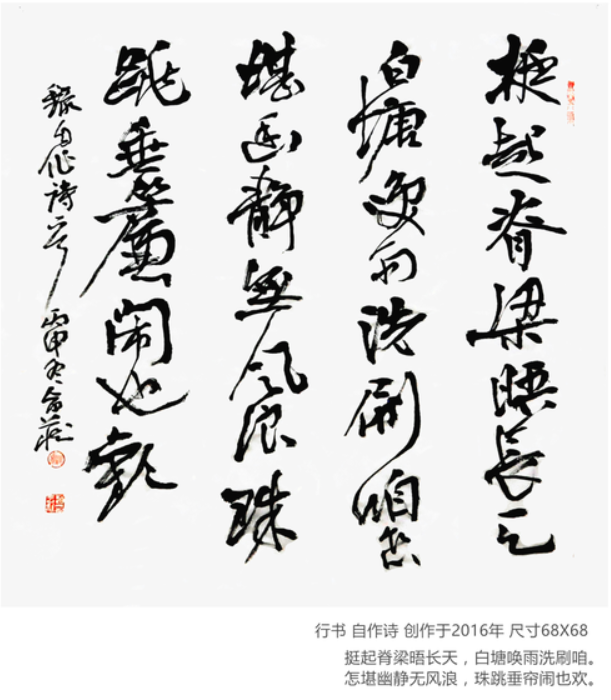 挺起脊梁晤長天
白塘唤雨洗刷咱怎
堪幽靜無風浪珠
跳垂簾鬧也歡
錄自作诗一首 丙申冬
行书 自作诗 创作于2016年 尺寸68X68
挺起脊梁晤长天，白塘唤雨洗刷咱。
怎堪幽静无风浪，珠跳垂帘闹也欢。